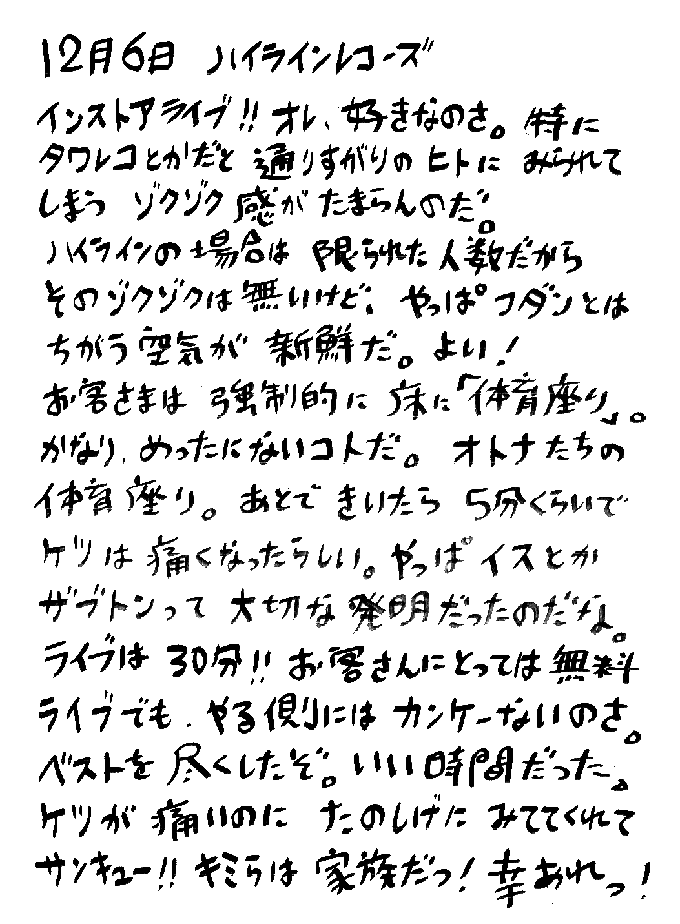 12月6日 ハイラインレコーズ
インストアライブ!! オレ、好きなのさ。特に
タワレコとかだと 通りすがりの ヒトに みられて
しまう ゾクゾク感が たまらんのだ。
ハイラインの場合は 限られた人数だから
そのゾクゾクは無いけど、やっぱ フダンとは
ちがう空気が 新鮮だ。よい!
お客さまは 強制的に 床に「体育座り」。
かなり、めったにないコトだ。 オトナたちの
体育座り。あとで きいたら 5分くらいで
ケツは痛くなったらしい。やっぱ イスとか
ザブトンって 大切な発明だったのだな。
ライブは 30分!! お客さんにとっては無料
ライブでも、やる側には カンケーないのさ。
ベストを 尽くしたぞ。いい時間だった。
ケツが 痛いのに たのしげに みててくれて
サンキュー!! キミらは 家族だっ! 幸あれっ!